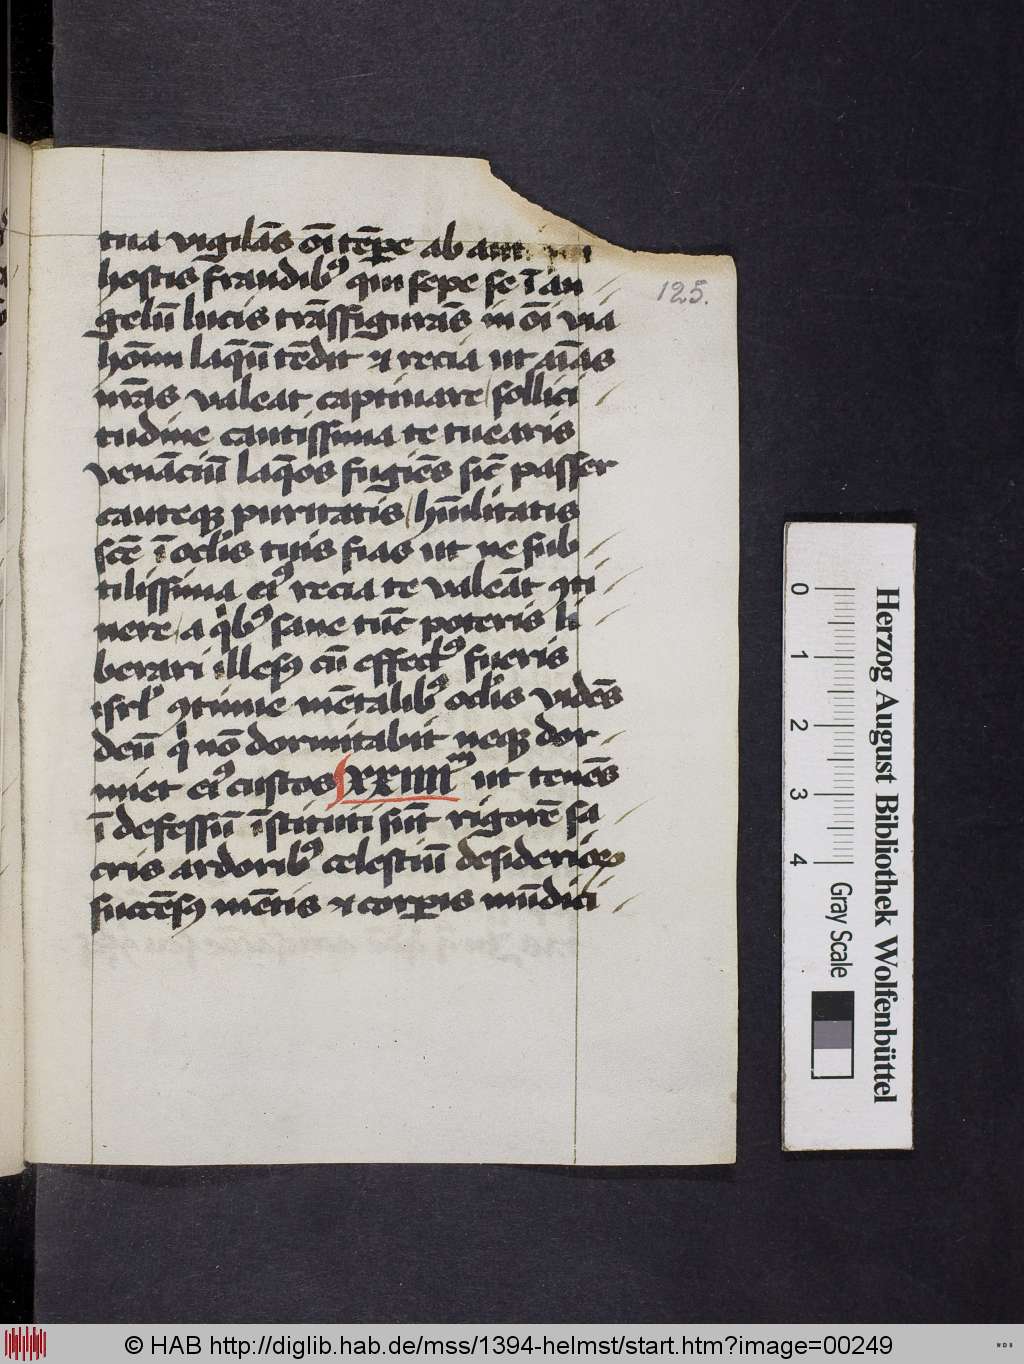 tua vigilās oī tēp̄e ab
hostis fraudibꝰ qui sepe se ī an
gelū lucis trāsfigurās in oī via
hoīm laq̄um tēdit & recia ut aīas
nrās valeat captivare / sollici
tudine cautissima te tuearis
venāciū laq̄os fugiēs sic̄ passer
cauteqꝫ puritatis / hūilitatis
sctē ī oclis tuis fias ut ne sub
tilissima eiꝰ recia te valeāt ꝯti
nere / a qⁱbꝰ sane tūc poteris li
berari illesꝰ cū effectꝰ fueris
isrl' ꝯtinue mētalibꝰ oclis vidēs
deū qⁱ nō dormitabit neqꝫ dor
miet eiꝰ custos XXIIIIᵐ ut tenēs
ī defessū īstituti sūt rigorē sa
cris ardoribꝰ celestiū desiderioꝝ
succēsꝰ mētis & corꝑis mūdici
125.
0 1 2 3 4
Gray Scale
Herzog August Bibliothek Wolfenbüttel
© HAB http://diglib.hab.de/mss/1394-helmst/start.htm?image=00249